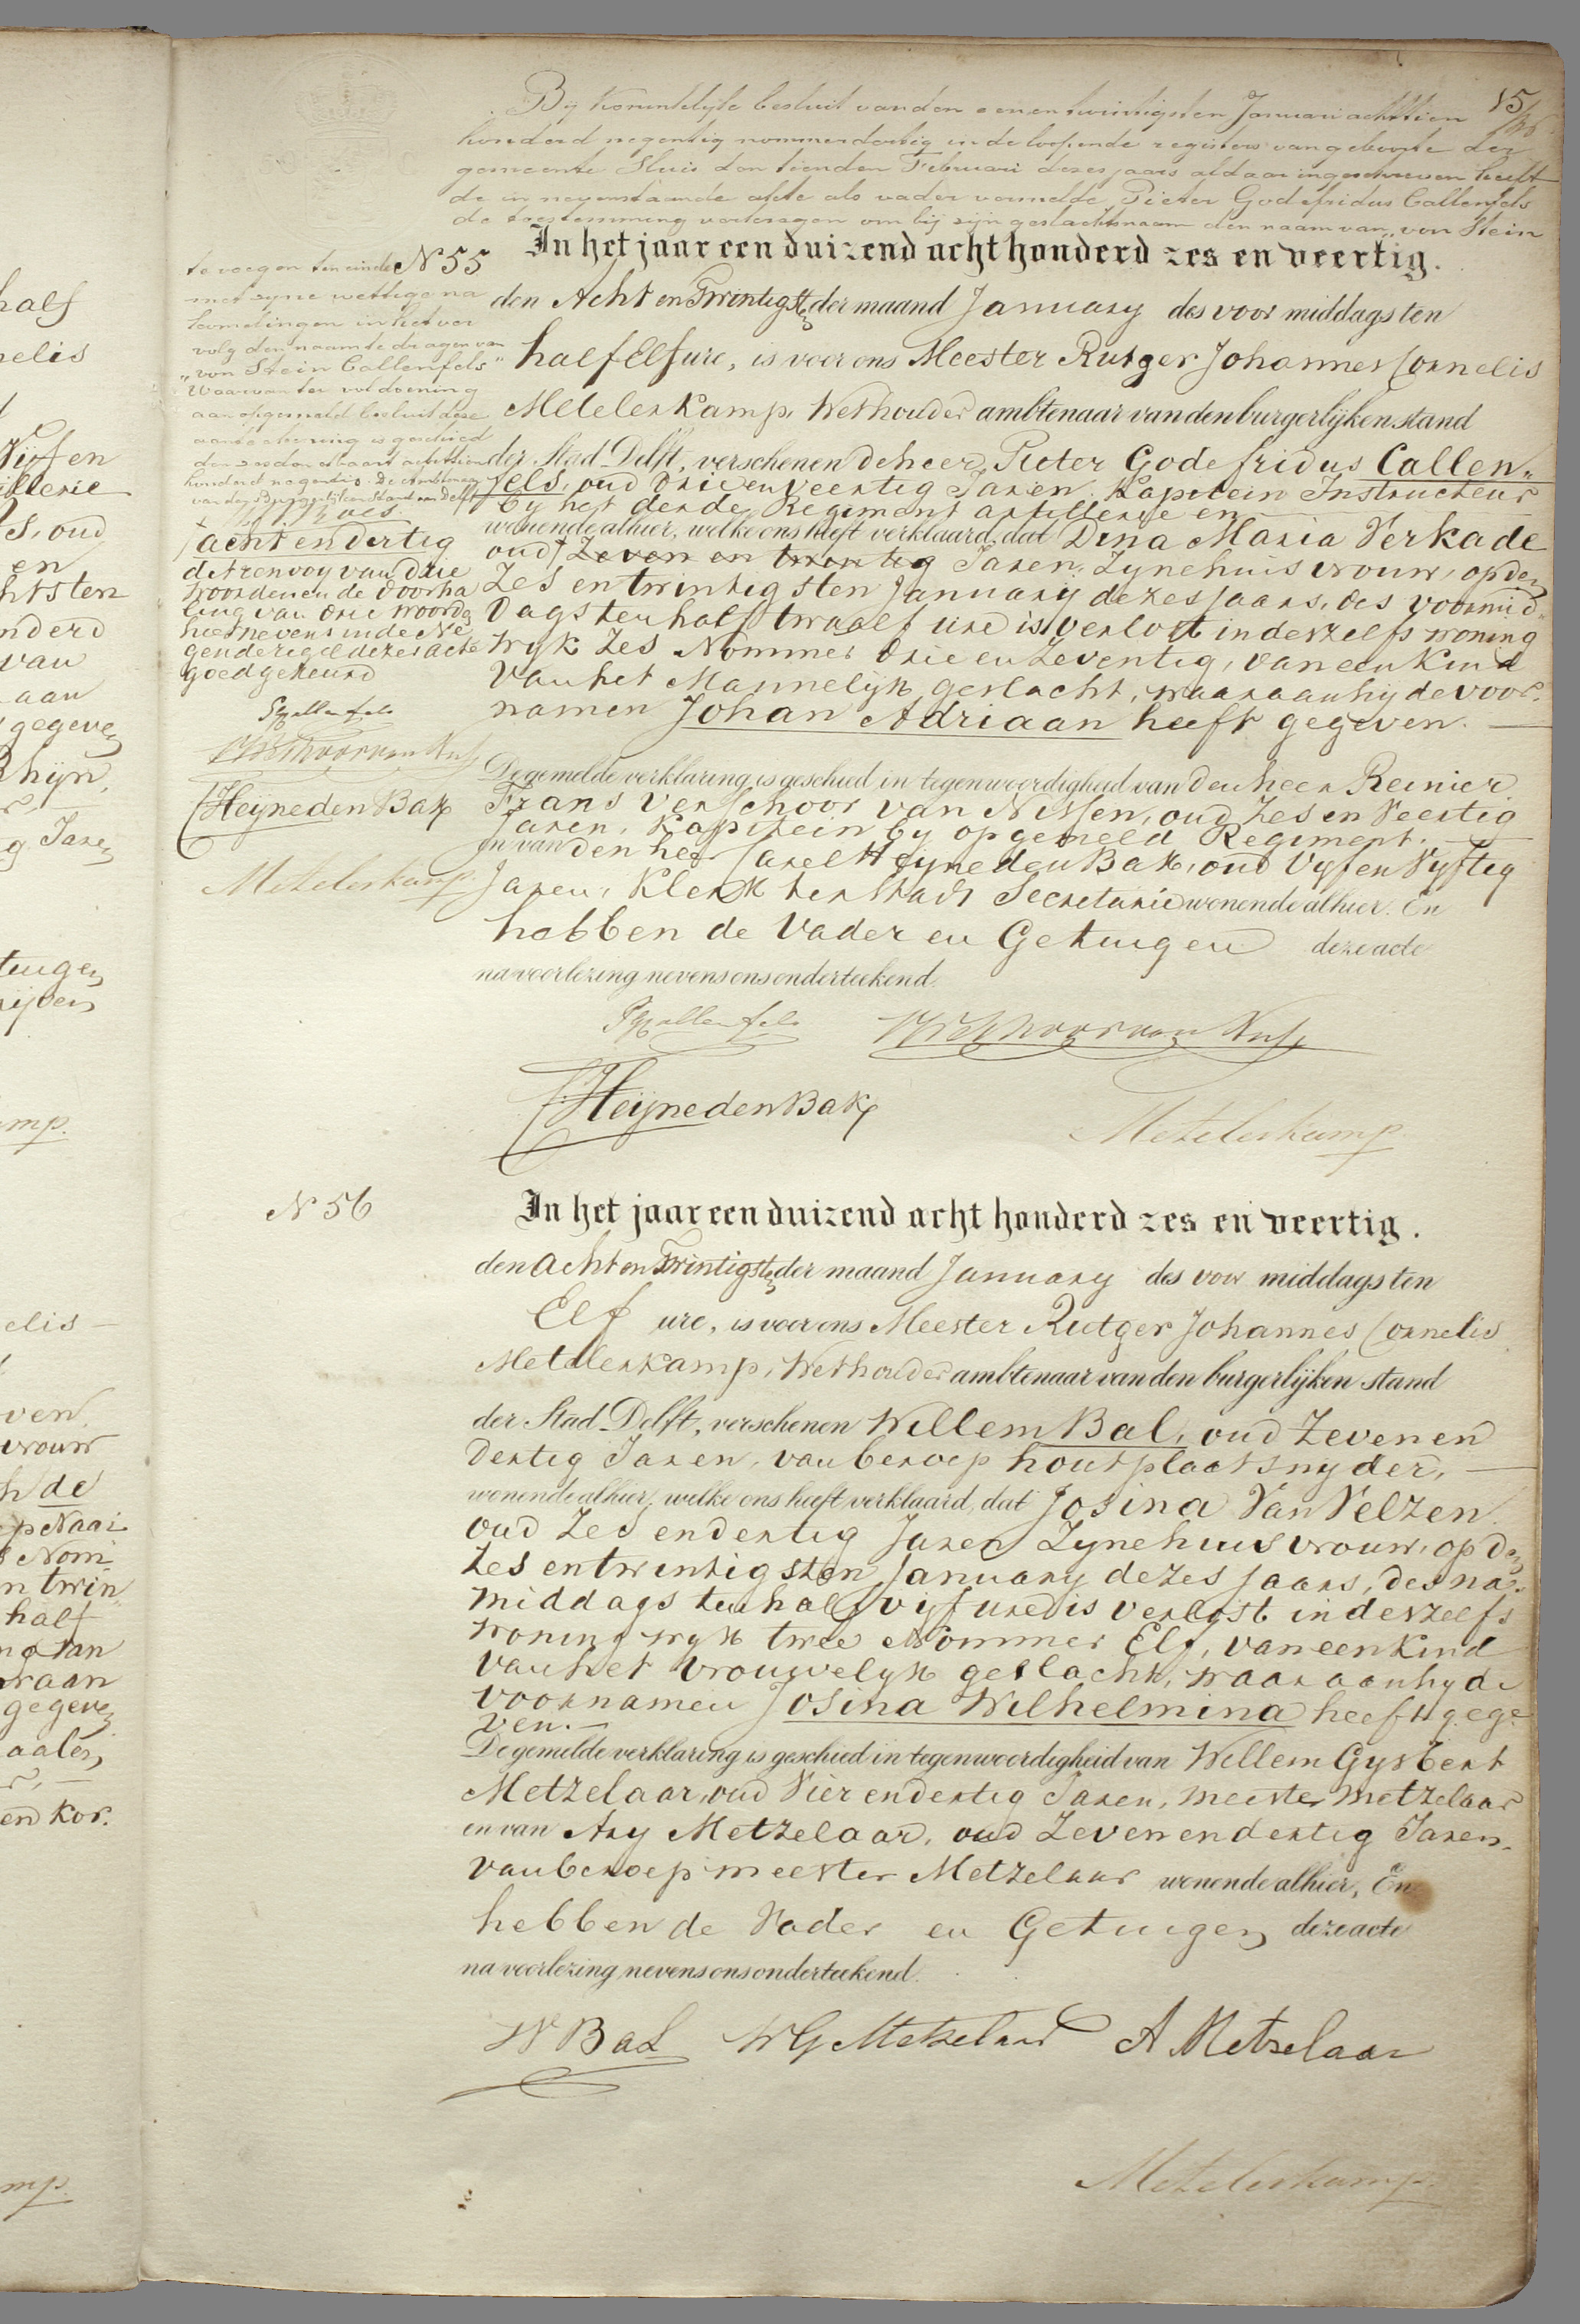 15
By Koninklijk besluit van den eenen twintigsten Januari achttien
honderd negentig nommer dertig in de loopende registers van geboorte der
gemeente Sluis den tienden Februari dezes jaars aldaar ingeschreven heeft
de in nevenstaande akte als vader vermelde Pieter Godefridus Callenfels
de toestemming verkregen om bij zijn geslachtsnaam den naam van „von Stein
te voegen ten einde
met zyne wettige na
komelingen in het ver
volg den naam te dragen van
„von Stein Callenfels"
Waarvan ter voldoening
aan opgemeld besluit deze
aanteekening is geschied
den achttien
honderd negentig. De Ambtenaar
van den Burgerlijken Stand van Delft
N 55
In het jaar een duizend acht honderd zes en veertig.
den Acht en Twintigsten der maand January des voor middags ten
half Elf ure, is voor ons Meester Rutger Johannes Cornelis
Metelerkamp, Wethouder ambtenaar van den burgerlijken stand
der Stad Delft, verschenen de heer Pieter Godefridus Callen„
fels, oud drie en veertig Jaren, Kapitein Instructeur
by het derde Regiment artillerie en
wonende alhier, welke ons heeft verklaard, dat Dina Maria Verkade
oud Zeven en twintig Jaren, Zynehuisvrouw, op den
Zes en twintigsten January dezes Jaars, des voormid„
dags ten half twaalf ure is verlost in deszelfs woning
Wyk Zes Nommer Drie en Zeventig, van een Kind
van het Mannelijk geslacht, waaraan hij de voor„
namen Johan Adriaan heeft gegeven.
achtendertig
dit renvoy van drie
woorden en de doorha
ling van drie woorden
hiernevens in de Ne
gende regel dezer acte
goedgekeurd
PGCallenfels
RFVerschoor van Nisse
CHeijnedenBak
Metelerkamp
De gemelde verklaring is geschied in tegenwoordigheid van den heer Reinier
Frans Verschoor van Nissen, oud Zes en Veertig
Jaren, Kapitein by opgemeld Regiment.
en van den heer Carel Heyne den Bak, oud Vyf en Vyftig
Jaren, Klerk ter Stads Secretarie wonende alhier. En
hebben de Vader en Getuigen deze acte
na voorlezing nevens ons onderteekend.
PGCallenfels RFVerschoor van Nisse
CHeijnedenBak
Metelerkamp
N 56
In het jaar een duizend acht honderd zes en veertig.
den Acht en Twintigsten der maand January des voor middags ten
Elf ure, is voor ons Meester Rutger Johannes Cornelis
Metelerkamp, Wethouder ambtenaar van den burgerlijken stand
der Stad Delft, verschenen Willem Bal, oud Zeven en
Dertig Jaren, van beroep houtplaatsnyder,
wonende alhier, welke ons heeft verklaard, dat Josina Van Velzen
oud Zes en dertig Jaren Zynehuisvrouw, op den
Zes en twintigsten January dezes Jaars, des na„
middags ten half vijf ure is verlost in deszelfs
woning wyk twee Nommer Elf, van een Kind
van het vrouwelyk geslacht, waaraan hy de
voornamen Josina Wilhelmina heeft gege„
ven.
De gemelde verklaring is geschied in tegenwoordigheid van Willem Gysbert
Metzelaar, oud Vier en dertig Jaren, meester Metzelaar
en van Ary Metzelaar, oud Zeven en dertig Jaren,
van beroep meester Metzelaar wonende alhier, En
hebben de Vader en Getuigen deze acte
na voorlezing nevens ons onderteekend.
W Bal WG Metselaar A Metselaar
Metelerkamp